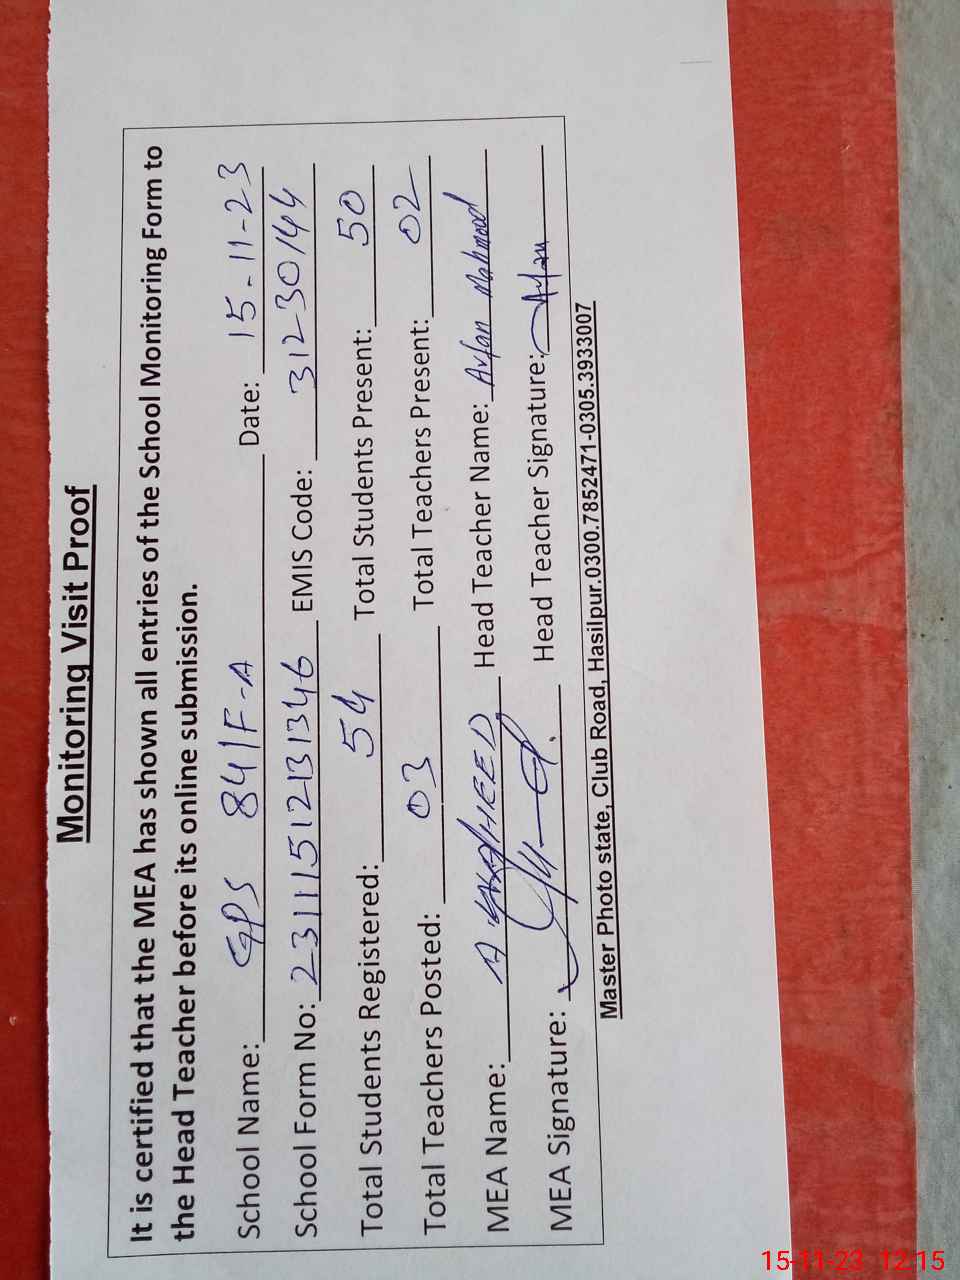 Monitoring Visit Proof
It is certified that the MEA has shown all entries of the School Monitoring Form to
the Head Teacher before its online submission.
School Name: GPS 84/F-A Date: 15-11-23
School Form No: 23111512131346 EMIS Code: 31230144
Total Students Registered: 54 Total Students Present: 50
Total Teachers Posted: 03 Total Teachers Present: 02
MEA Name: A Head Teacher Name: Avfan Mahmood
MEA Signature: Head Teacher Signature: Avfan
Master Photo state, Club Road, Hasilpur.0300.7852471-0305.3933007
15-11-23 12:15